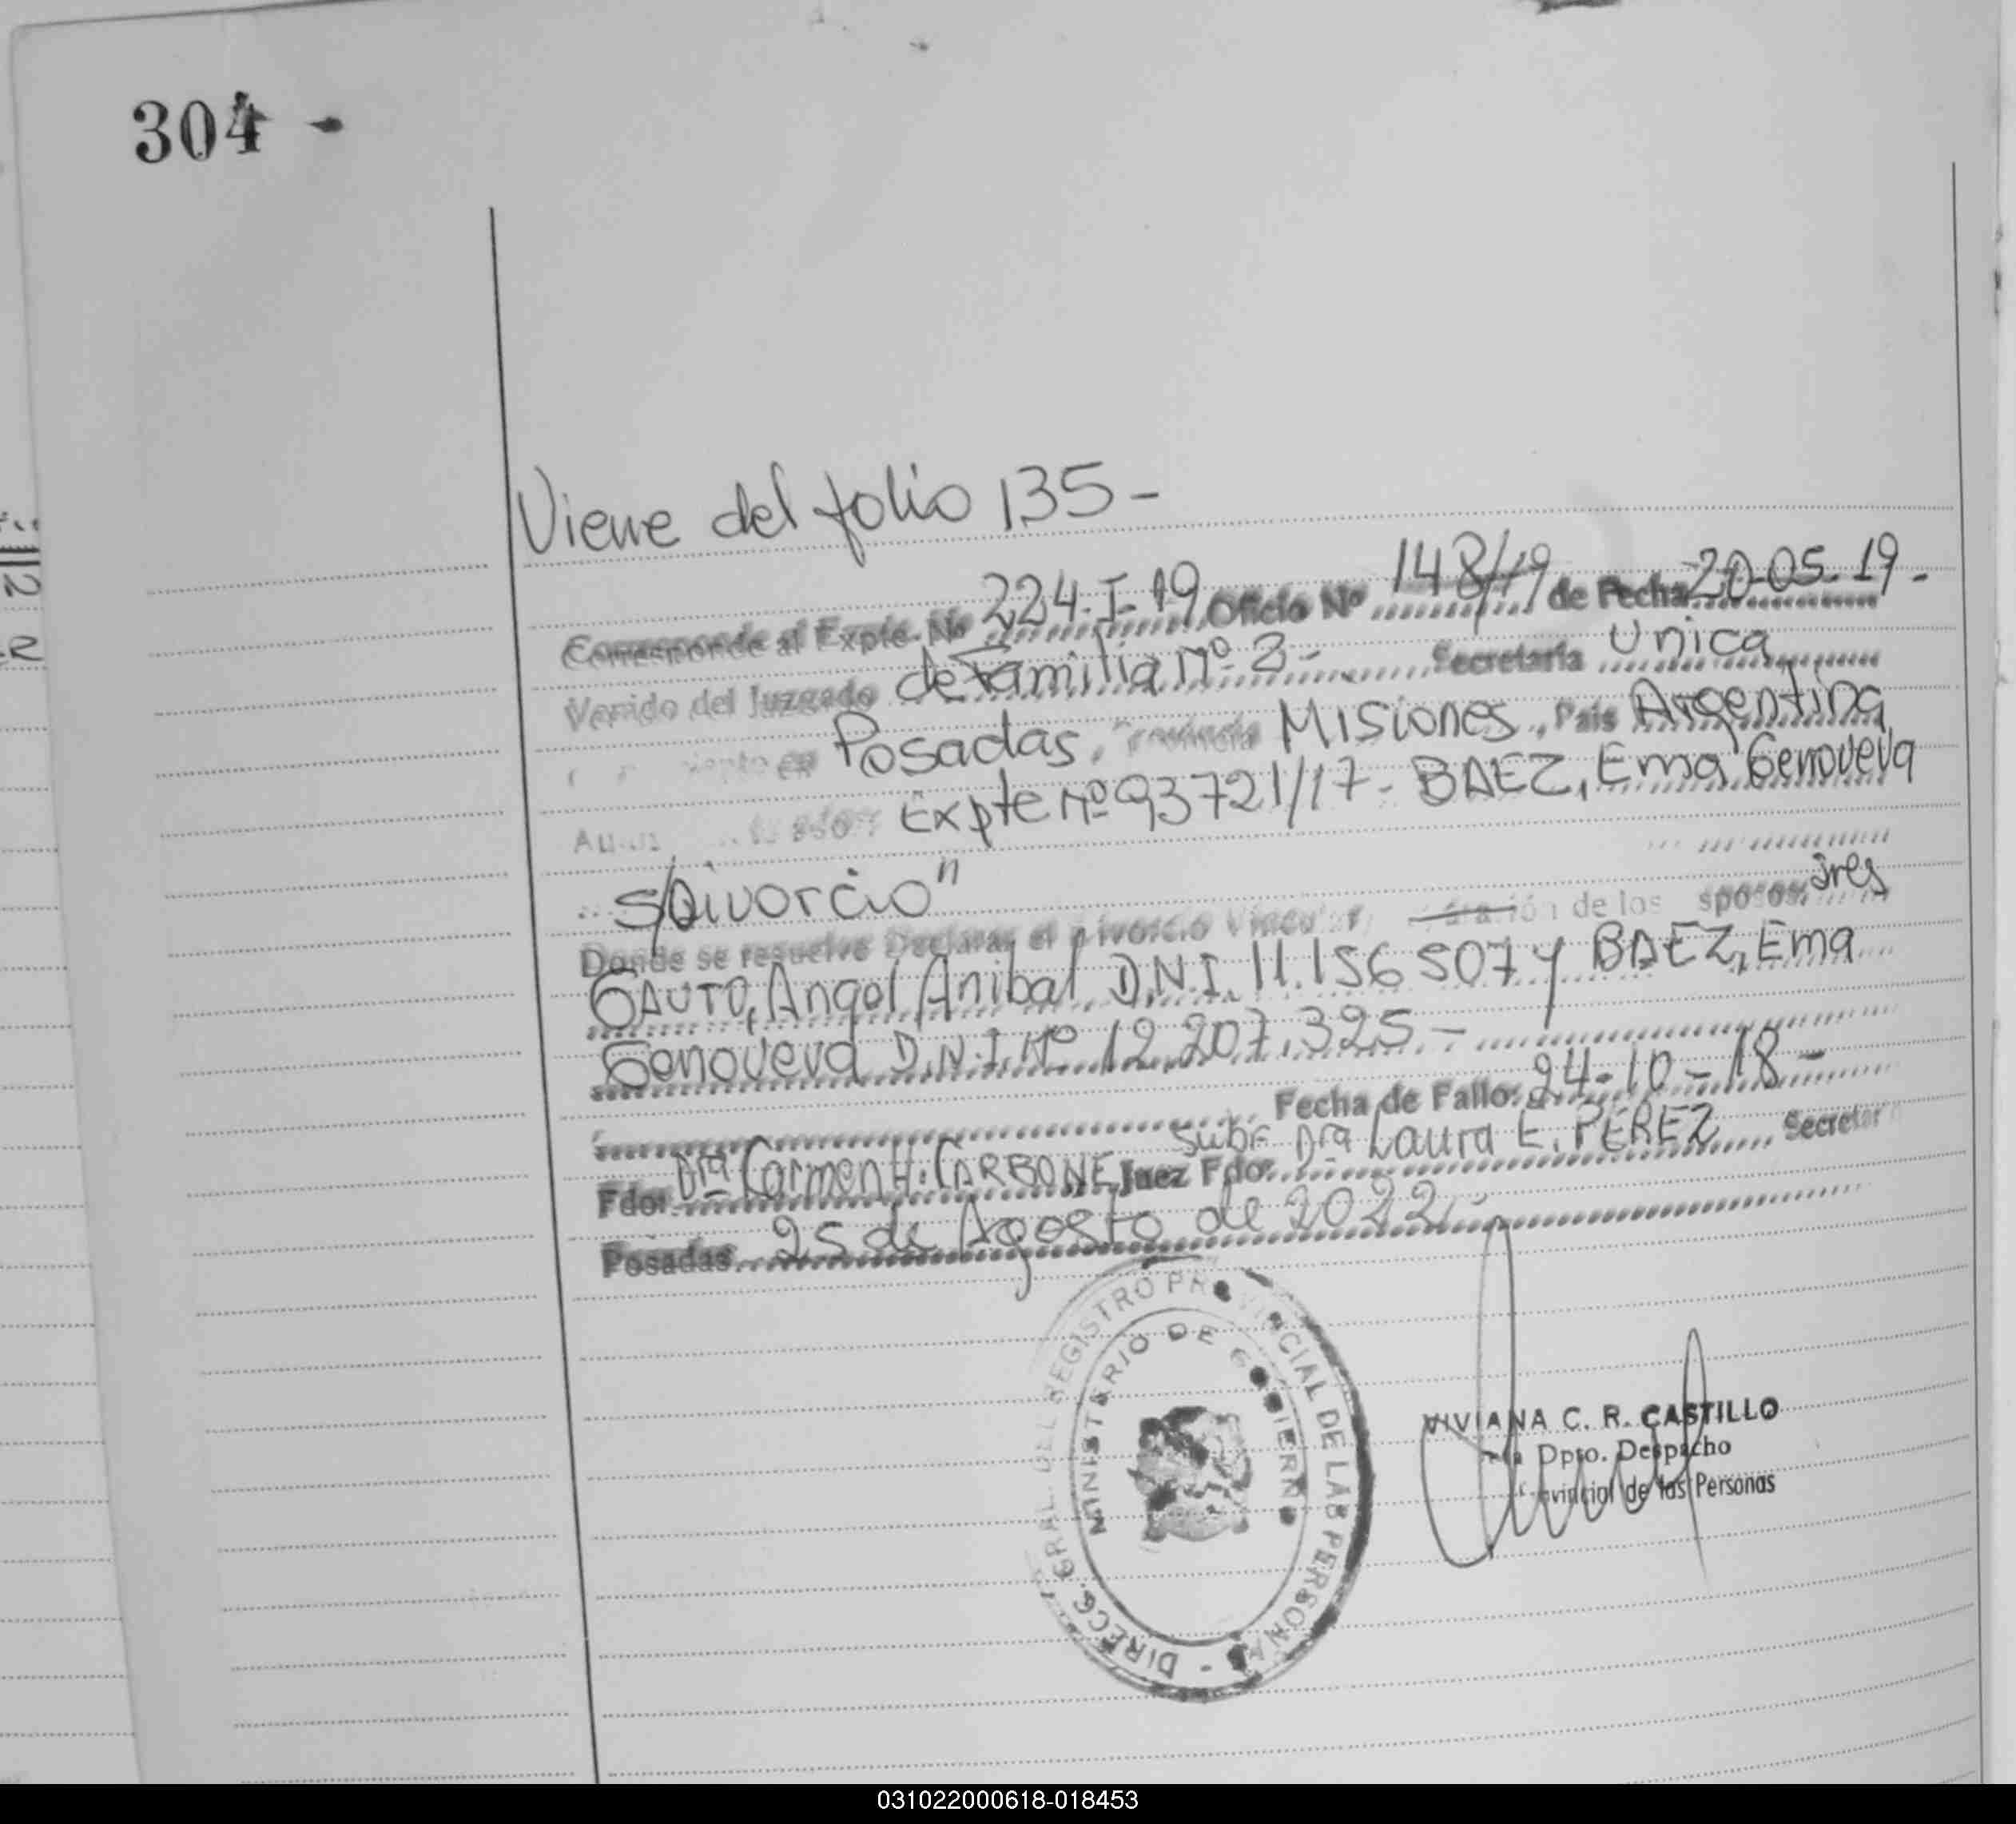 304 -
Viene del folio 135 -
Corresponde al Expte. Nº 224-I-19 Oficio Nº 148/19 de Fecha 20-05-19.-
Venido del Juzgado de Familia Nº 2 - Secretaría Unica
Posadas, Provincia Misiones, País Argentina
Expte Nº 93721/17- BAEZ, Ema Genoveva
s/Divorcio"
Donde se resuelve Declarar el Divorcio Vincular de los sposos: Sres
GAUTO, Angel Anibal D.N.I. 11.156507 y BAEZ, Ema
Genoveva D.N.I. Nº 12.207.325.-
Fecha de Fallo: 24-10-18-
Fdo: Dra Carmen H. CARBONE Juez Fdo: Subr Dra Laura E. PEREZ Secretar
Posadas, 25 de Agosto de 2022.-
DIRECC. GRAL. DEL REGISTRO PROVINCIAL DE LAS PERSONAS -
MINISTERIO DE GOBIERNO
VIVIANA C. R. CASTILLO
Dpto. Despacho
ovincial de las Personas
031022000618-018453